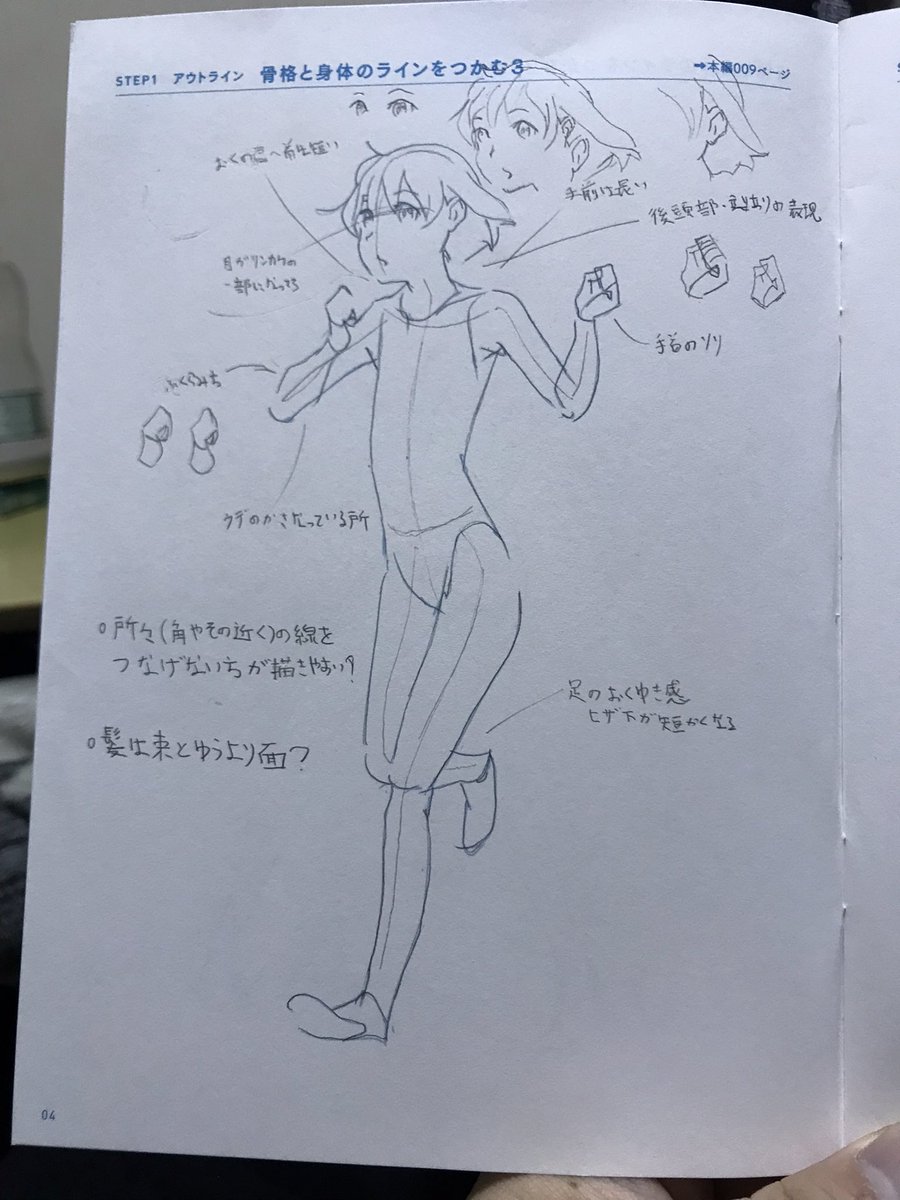 STEP1 アウトライン 骨格と身体のラインをつかむ3
➡本編009ページ
おくの肩へ首は短い
手前は長い
後頭部・まわりの表現
目がリンカクの
一部になってる
手首のソリ
ふくらみち
ウデのかさなっている所
○所々(角やその近く)の線を
つなげないちが描きやすい?
足のおくゆき感
ヒザ下が短かくなる
○髪は束とゆうより面?
04